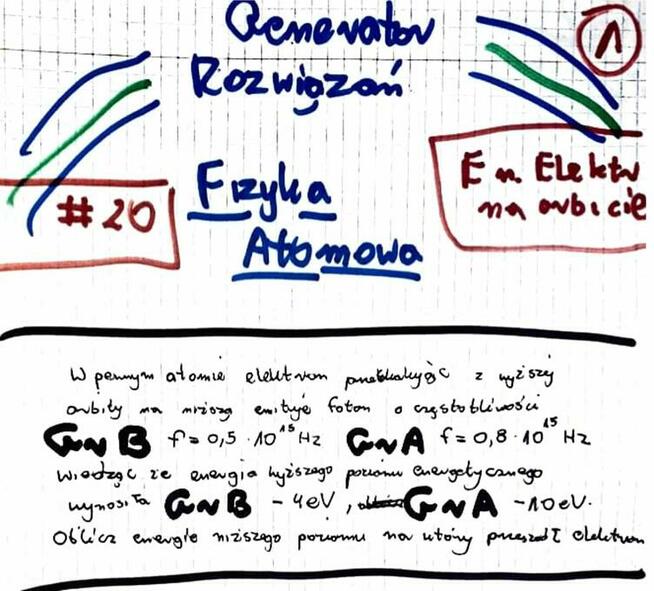 Generator
Rozwiązań
1
#20
Fizyka
Atomowa
E n. Elektr
na orbicie
W pewnym atomie elektron przeskakując z wyższej
orbity na niższą emituje foton o częstotliwości
GrB f = 0,5 · 10¹⁵ Hz GrA f = 0,8 · 10¹⁵ Hz
Wiedząc że energia wyższego poziomu energetycznego
wynosiła GrB -4eV, GrA -10eV.
Oblicz energię niższego poziomu na który przeszedł elektron